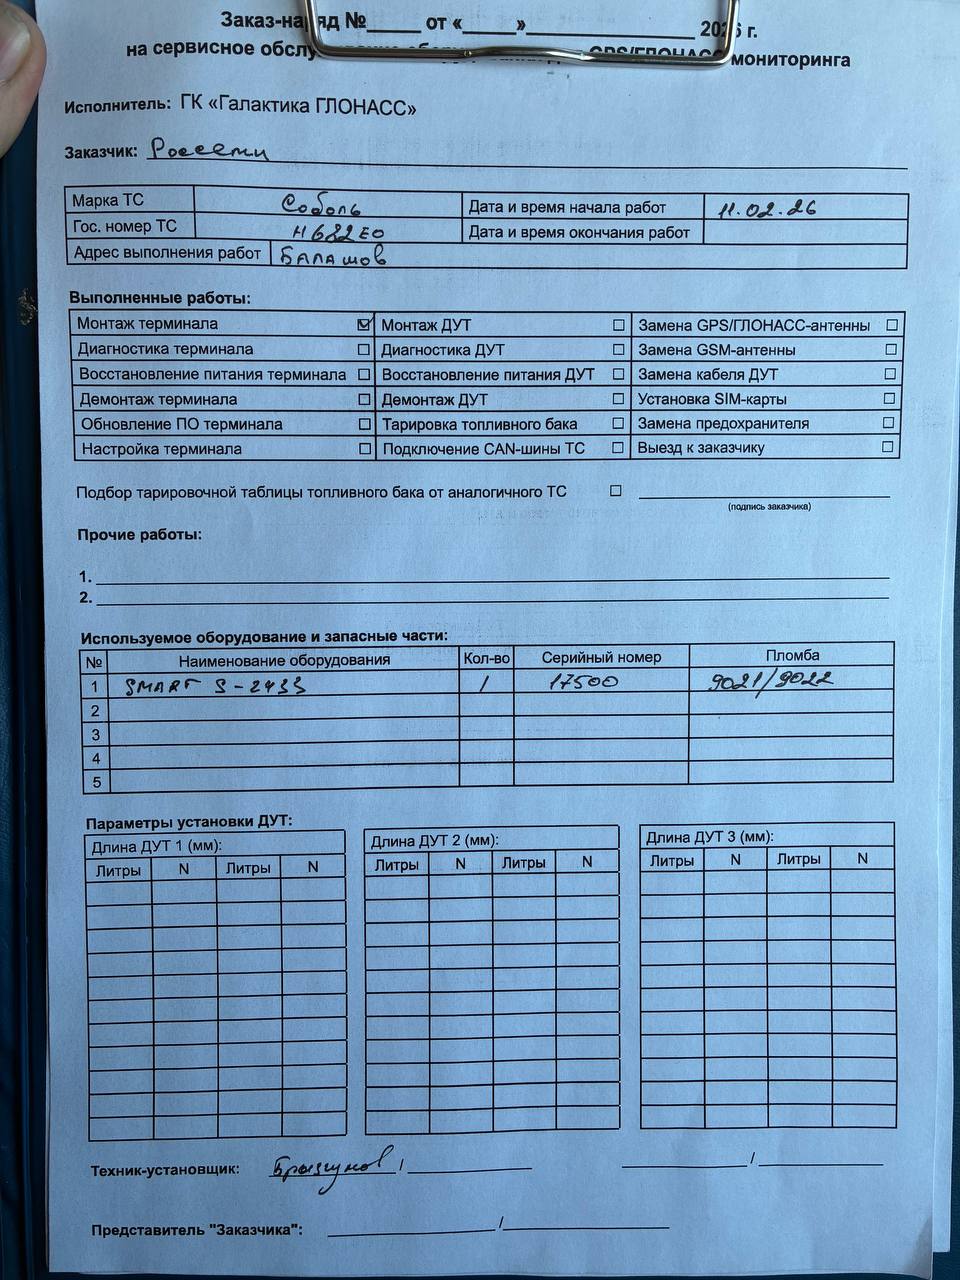 Заказ-наряд №_____ от «_____»________________ 2026 г.
на сервисное GPS/ГЛОНАСС мониторинга
Исполнитель: ГК «Галактика ГЛОНАСС»
Заказчик: Россети
Марка ТС Соболь Дата и время начала работ 11.02.26
Гос. номер ТС Н682ЕО Дата и время окончания работ
Адрес выполнения работ Балашов
Выполненные работы:
Монтаж терминала ☑ Монтаж ДУТ ☐ Замена GPS/ГЛОНАСС-антенны ☐
Диагностика терминала ☐ Диагностика ДУТ ☐ Замена GSM-антенны ☐
Восстановление питания терминала ☐ Восстановление питания ДУТ ☐ Замена кабеля ДУТ ☐
Демонтаж терминала ☐ Демонтаж ДУТ ☐ Установка SIM-карты ☐
Обновление ПО терминала ☐ Тарировка топливного бака ☐ Замена предохранителя ☐
Настройка терминала ☐ Подключение CAN-шины ТС ☐ Выезд к заказчику ☐
Подбор тарировочной таблицы топливного бака от аналогичного ТС ☐
(подпись заказчика)
Прочие работы:
1.
2.
Используемое оборудование и запасные части:
№ Наименование оборудования Кол-во Серийный номер Пломба
1 SMART S-2433 1 17500 9021/9022
2
3
4
5
Параметры установки ДУТ:
Длина ДУТ 1 (мм): Длина ДУТ 2 (мм): Длина ДУТ 3 (мм):
Литры N Литры N Литры N Литры N Литры N Литры N
Техник-установщик: Брызгунов / /
Представитель "Заказчика": /